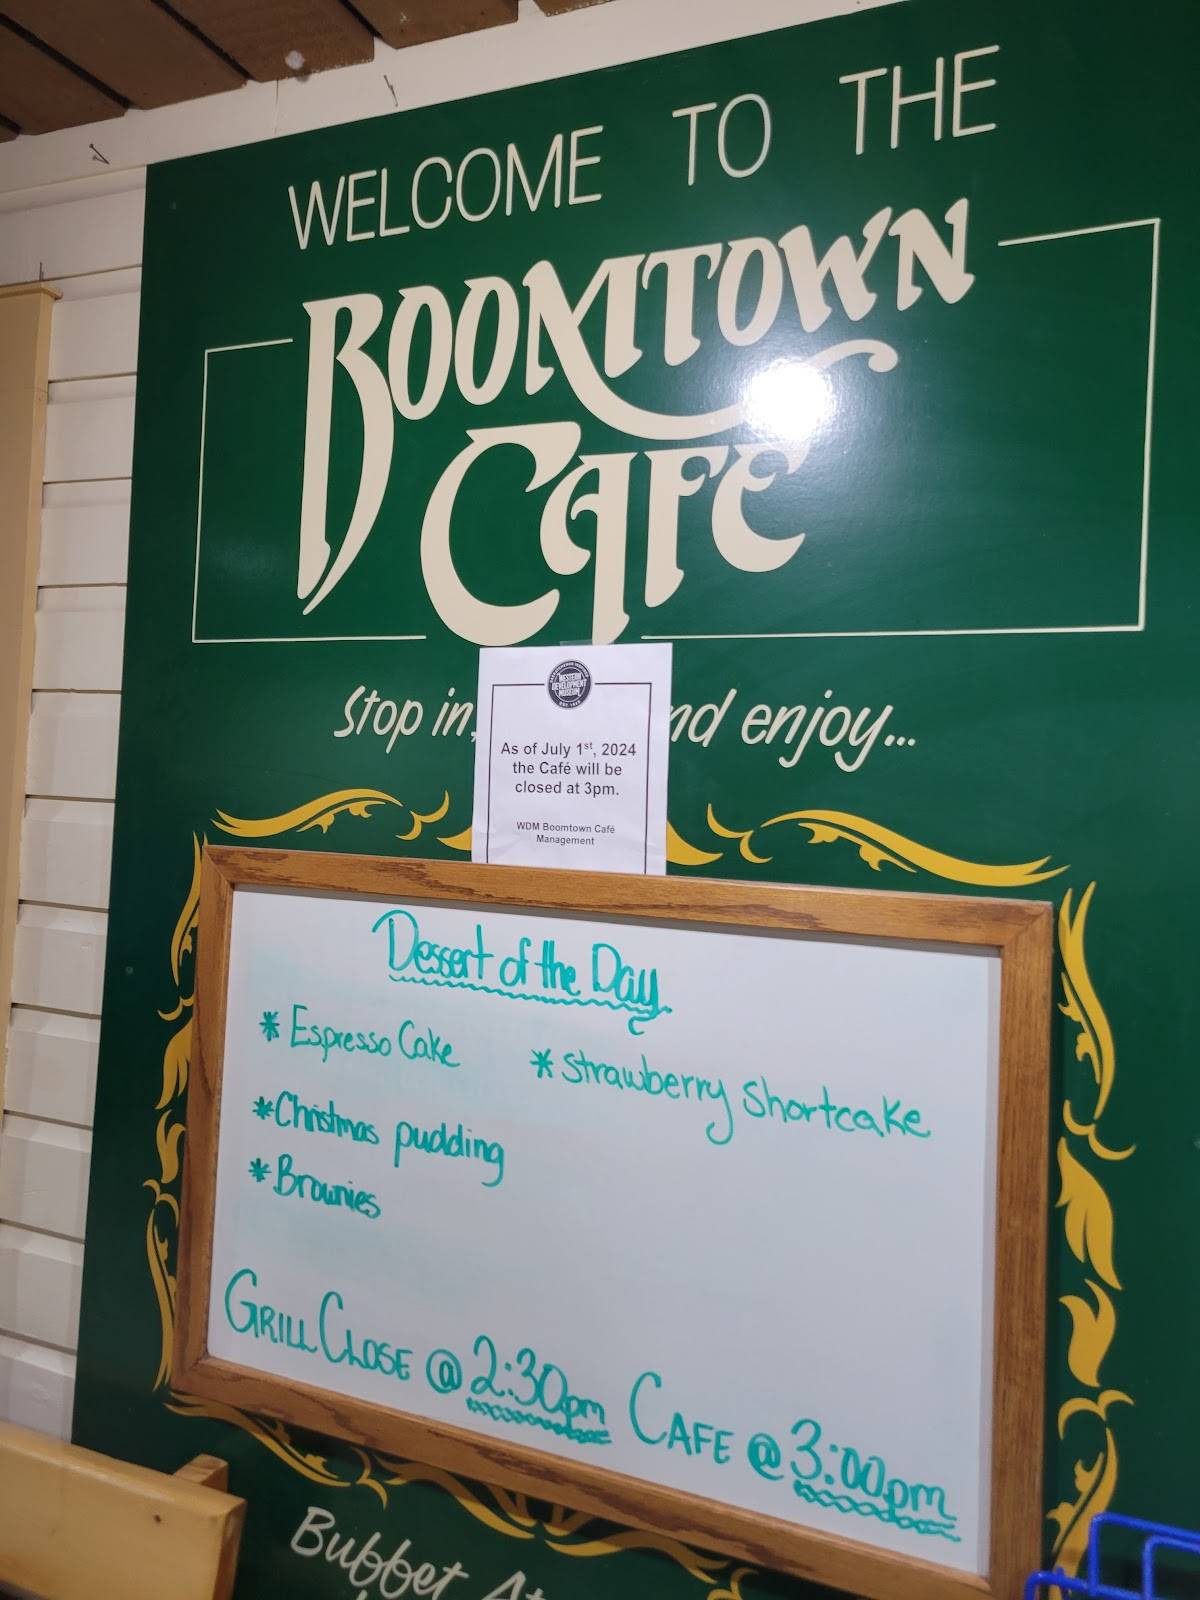 WELCOME TO THE
BOOMTOWN
CAFE
Stop in,
enjoy...
WESTERN
DEVELOPMENT
MUSEUM
As of July 1st, 2024
the Café will be
closed at 3pm.
WDM Boomtown Café
Management
Dessert of the Day
* Espresso Cake * Strawberry Shortcake
* Christmas pudding
* Brownies
GRILL CLOSE @ 2:30pm CAFE @ 3:00pm